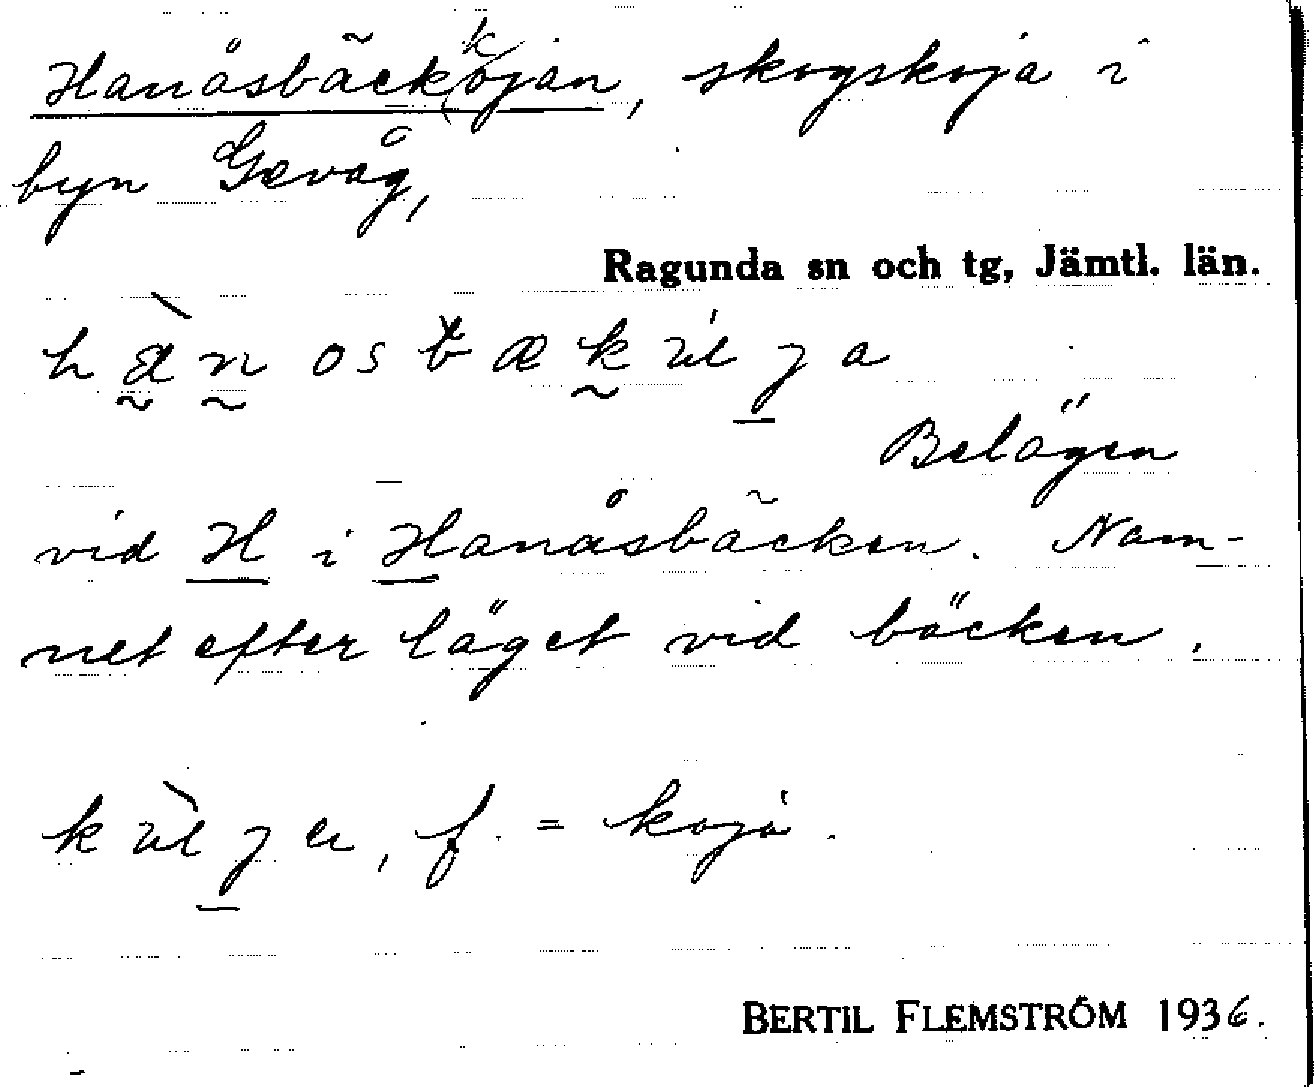 Hanåsbäckkojan, skogskoja i
byn Gevåg,
Ragunda sn och tg, Jämtl. län.
Belägen
vid H i Hanåsbäcken. Nam-
net efter läget vid bäcken.
f. = koja.
BERTIL FLEMSTRÖM 1936.